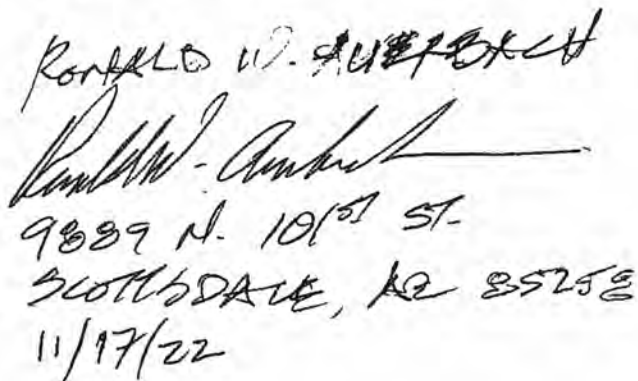 RONALD W. AUERBACH
Ronald W. Auerbach
9889 N. 101st ST.
SCOTTSDALE, AZ 85258
11/17/22